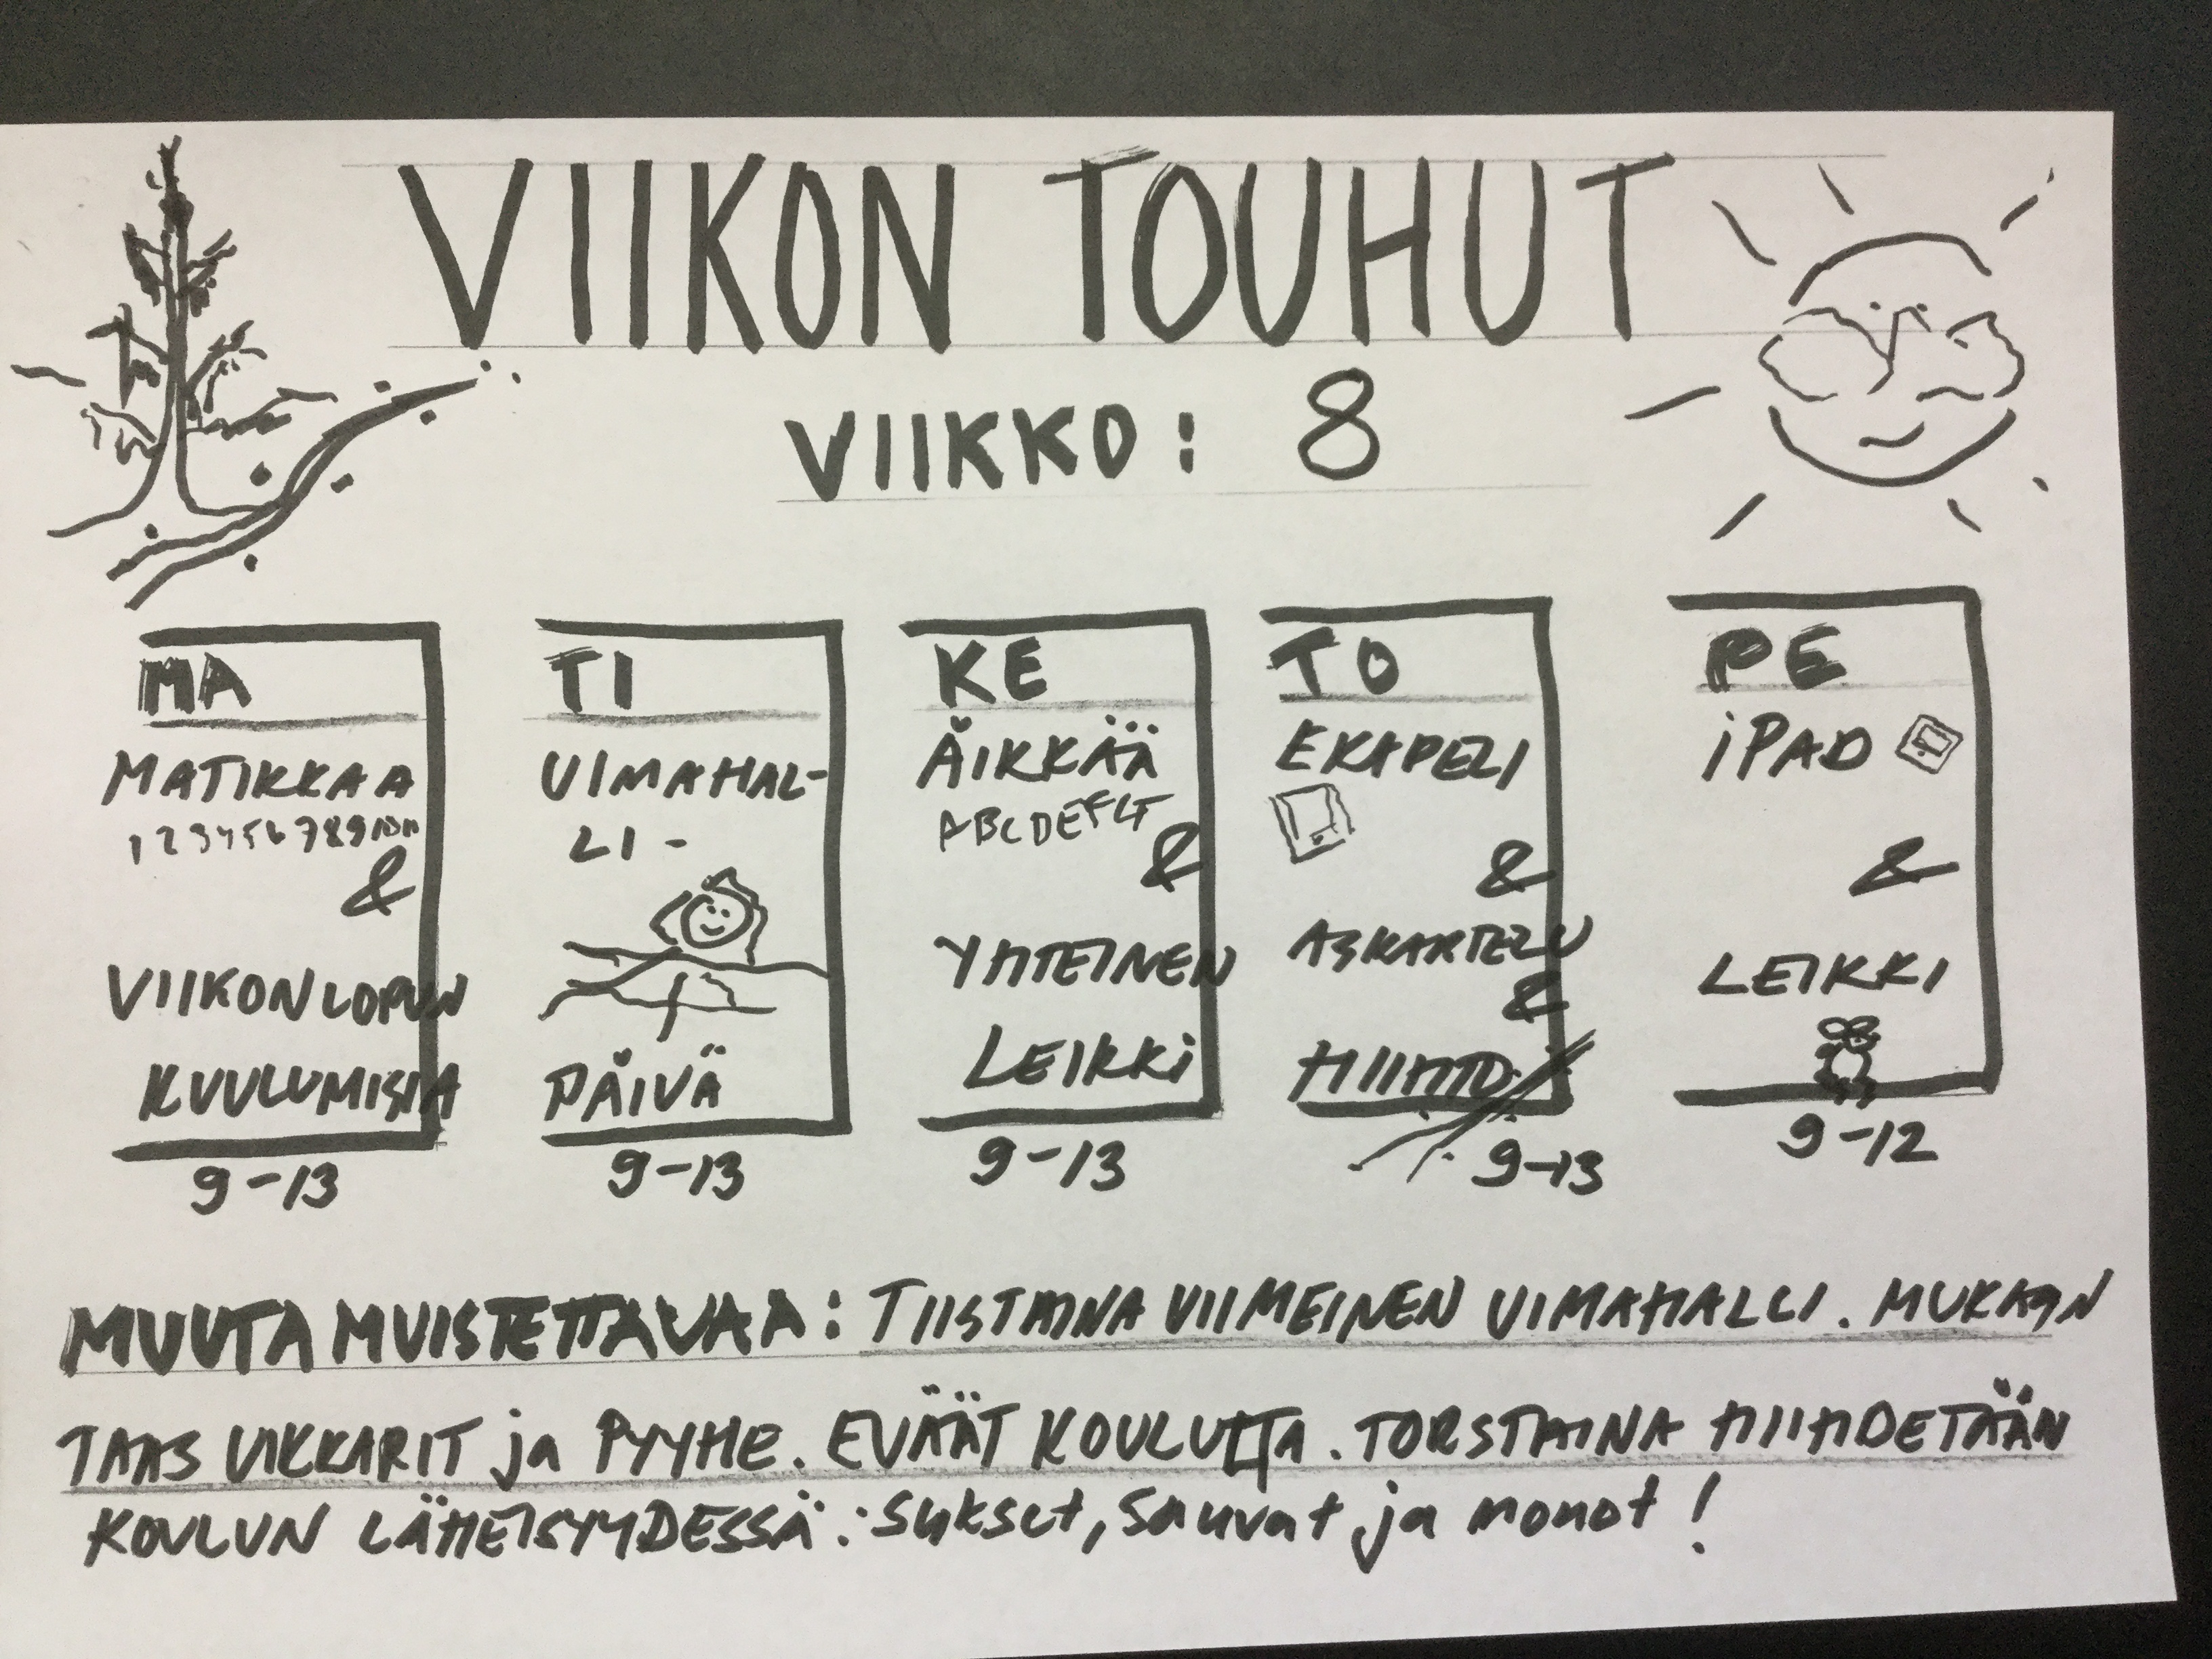 VIIKON TOUHUT
VIIKKO: 8
MA
MATIKKAA
1234567891011
&
VIIKONLOPUN
KUULUMISIA
9-13
TI
UIMAHAL-
LI-
PÄIVÄ
9-13
KE
ÄIKKÄÄ
ABCDEFG
&
YHTEINEN
LEIKKI
9-13
TO
EKAPELI
&
ASKARTELU
&
HIIHTO
9-13
PE
iPAD
&
LEIKKI
9-12
MUUTA MUISTETTAVAA: TIISTAINA VIIMEINEN UIMAHALLI. MUKAAN
TAAS UIKKARIT ja PYYHE. EVÄÄT KOULULTA. TORSTAINA HIIHDETÄÄN
KOULUN LÄHEISYYDESSÄ: sukset, sauvat ja monot!